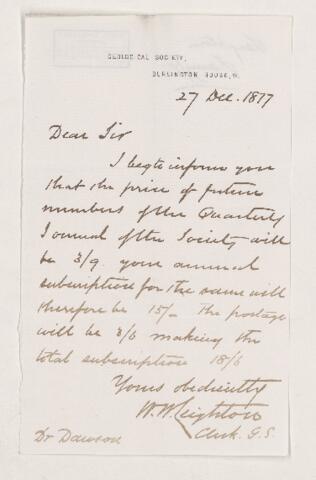 GEOLOGICAL SOCIETY,
BURLINGTON HOUSE, W.
27 Dec. 1877
Dear Sir
I beg to inform you
that the price of future
numbers of the Quarterly
Journal of the Society will
be 3/9. your annual
subscription for the same will
therefore be 15/- the postage
will be 3/6 making the
total subscription 18/6
Yours obediently
W. W. Leighton
Clerk. G.S.
Dr Dawson